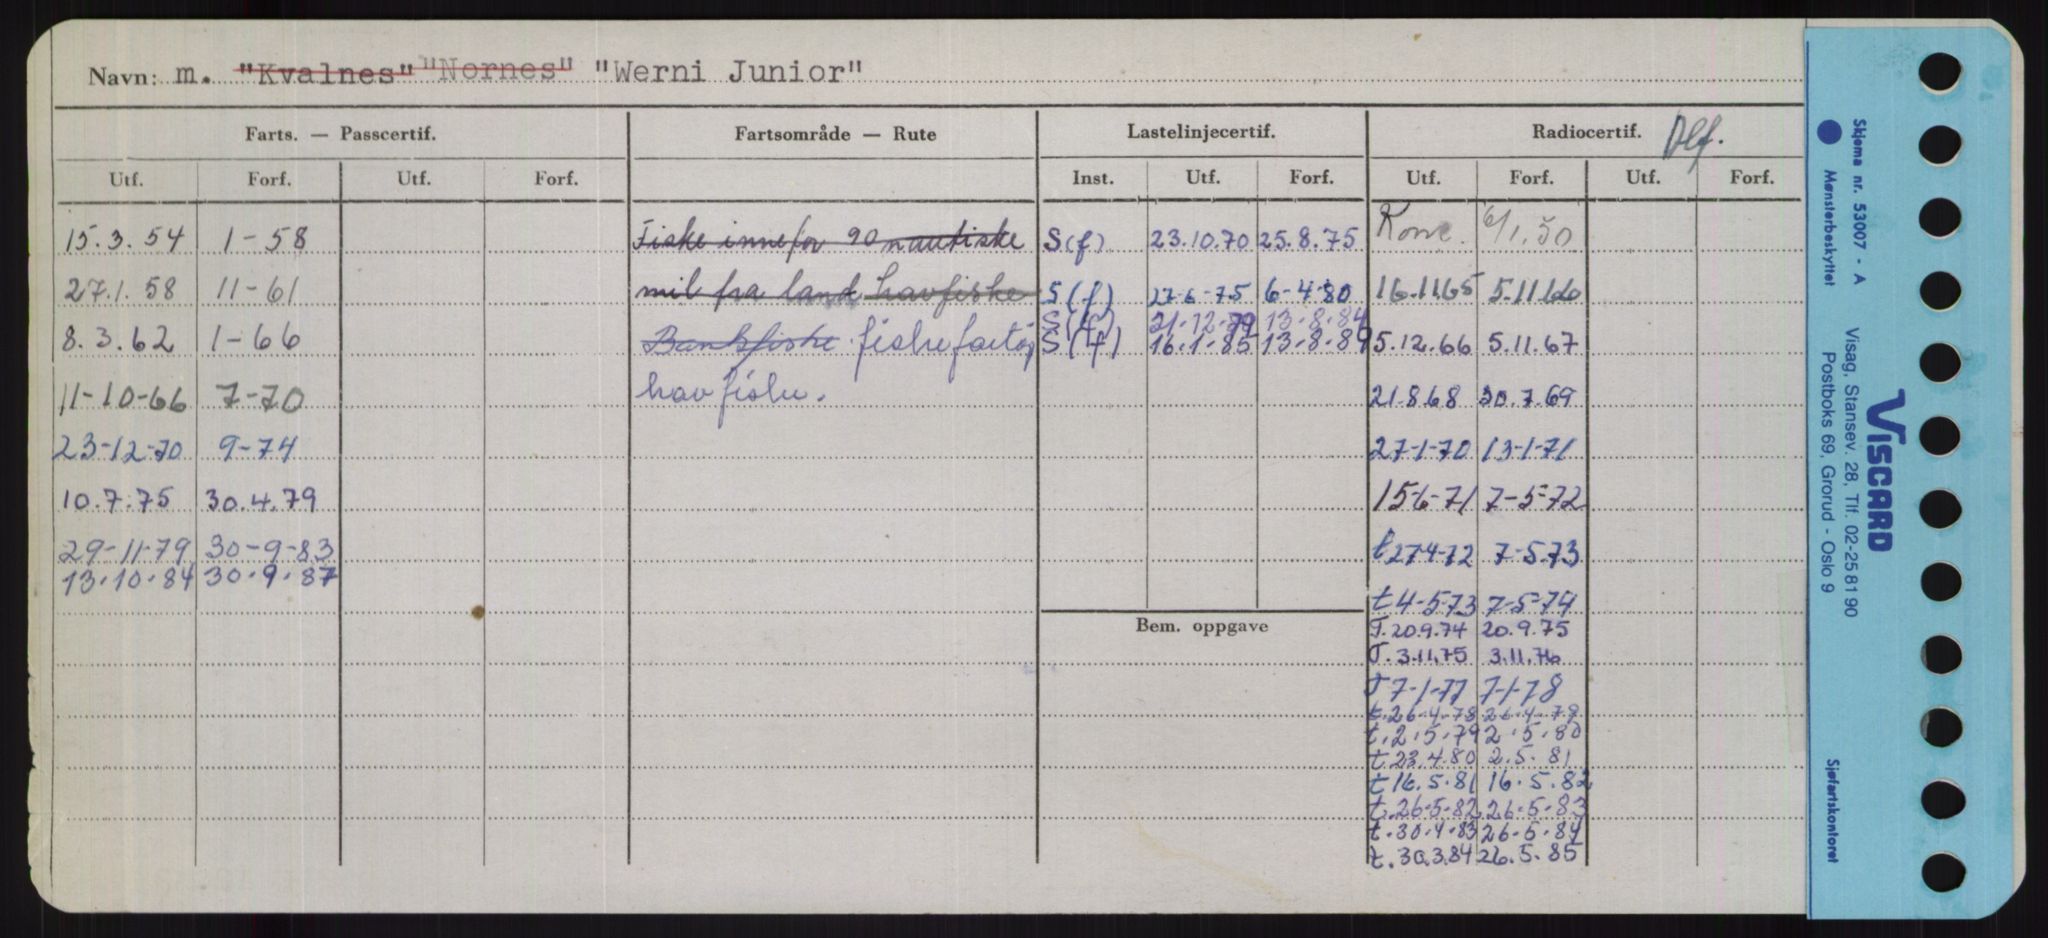 Navn: m. "Kvalnes" "Nornes" "Werni Junior"
Farts. — Passcertif. Fartsområde — Rute Lastelinjecertif. Radiocertif.
Utf. Forf. Utf. Forf. Inst. Utf. Forf. Utf. Forf. Utf. Forf.
15.3.54 1-58 Fiske innefor 90 nautiske S(f) 23.10.70 25.8.75 6/1.50
27.1.58 11-61 mil fra land havfiske S(f) 27-6-75 6-4-80 16.11.65 5.11.66
S(f) 21-12-79 13-8-84
8.3.62 1-66 Bankfiske fiskefartøy S(f) 16.1.85 13-8-89 5.12.66 5.11.67
11-10-66 7-70 havfiske. 21.8.68 30.7.69
23-12-70 9-74 27-1-70 13-1-71
10.7.75 30.4.79 15-6-71 7-5-72
29-11-79 30-9-83 t 27-4-72 7-5.73
13.10.84 30.9.87
t 4-5-73 7-5-74
Bem. oppgave T. 20.9.74 20.9.75
T. 3.11.75 3.11.76
T 7-1-77 7-1-78
t. 26-4-78 26-4-79
t. 2.5.79 2.5.80
t. 23.4.80 2.5.81
t 16.5.81 16.5.82
t. 26-5-82 26-5-83
t. 30.4.83 26-5-84
t. 30.3.84 26.5.85
Skjema nr. 53007 - A
Mønsterbeskyttet
VISCARD
Visag, Stansev. 28, Tlf. 02-25 81 90
Postboks 69, Grorud - Oslo 9
Sjøfartskontoret